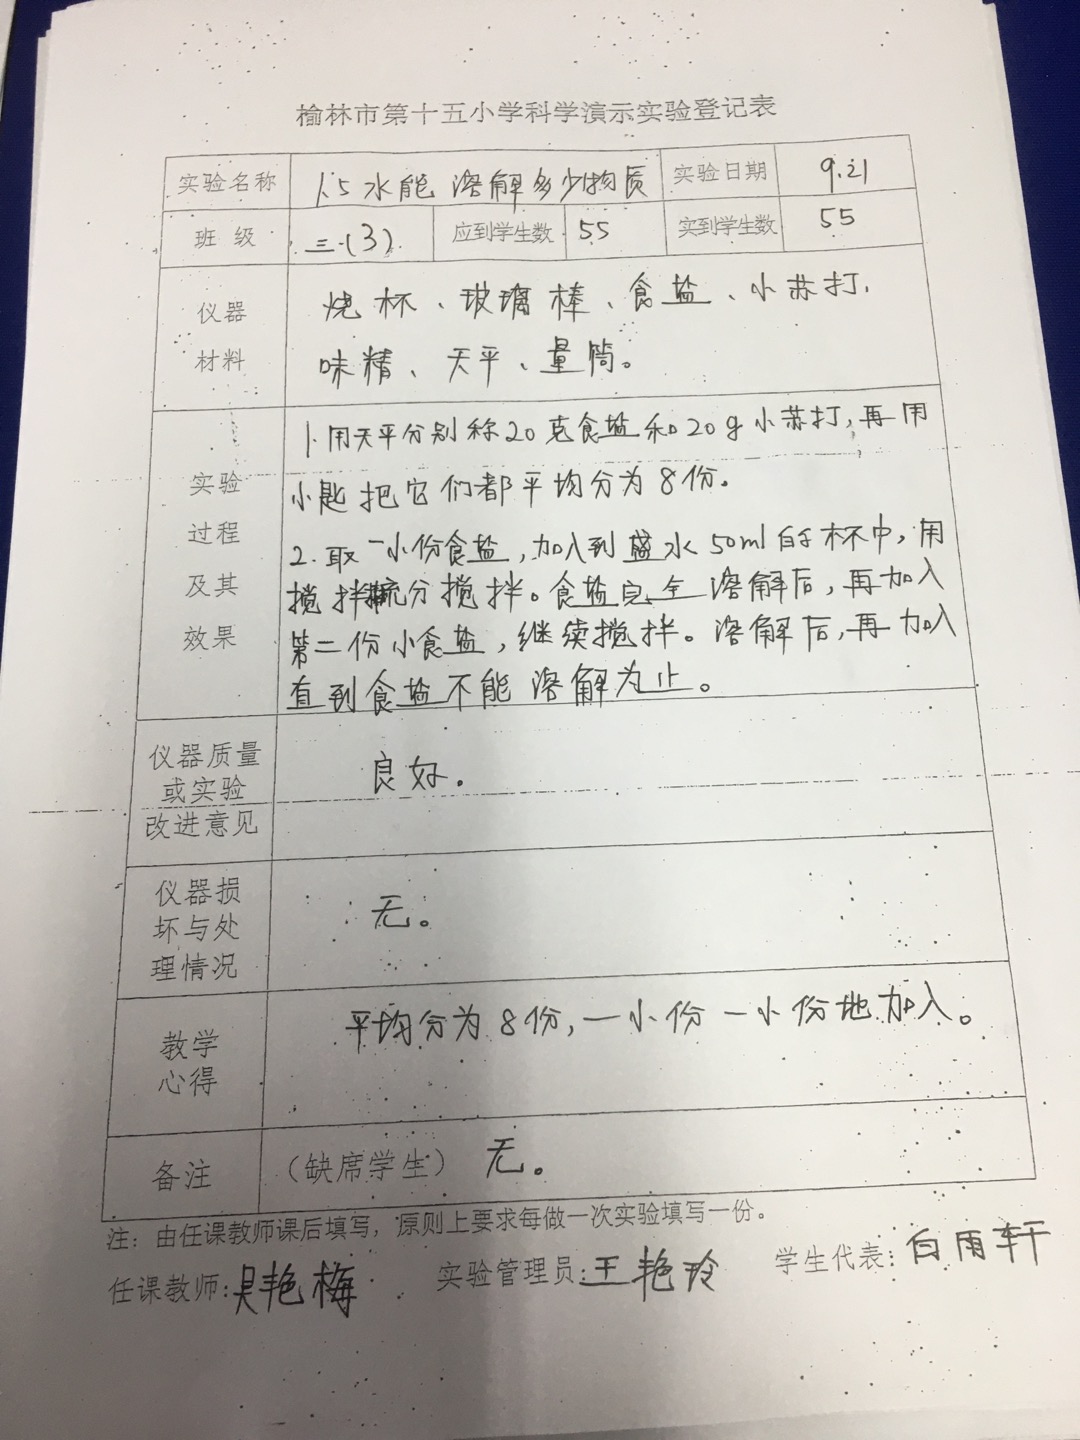 榆林市第十五小学科学演示实验登记表
实验名称 1.5水能溶解多少物质 实验日期 9.21
班级 三.(3) 应到学生数 55 实到学生数 55
仪器
材料
烧杯、玻璃棒、食盐、小苏打、
味精、天平、量筒。
实验
过程
及其
效果
1.用天平分别称20克食盐和20g小苏打,再用
小匙把它们都平均分为8份.
2.取一小份食盐,加入到盛水50ml的杯中,用
搅拌棒充分搅拌。食盐完全溶解后,再加入
第二份小食盐,继续搅拌。溶解后,再加入
直到食盐不能溶解为止。
仪器质量
或实验
改进意见
良好。
仪器损
坏与处
理情况
无。
教学
心得
平均分为8份,一小份一小份地加入。
备注 (缺席学生) 无。
注:由任课教师课后填写,原则上要求每做一次实验填写一份。
任课教师:吴艳梅 实验管理员:王艳玲 学生代表:白雨轩